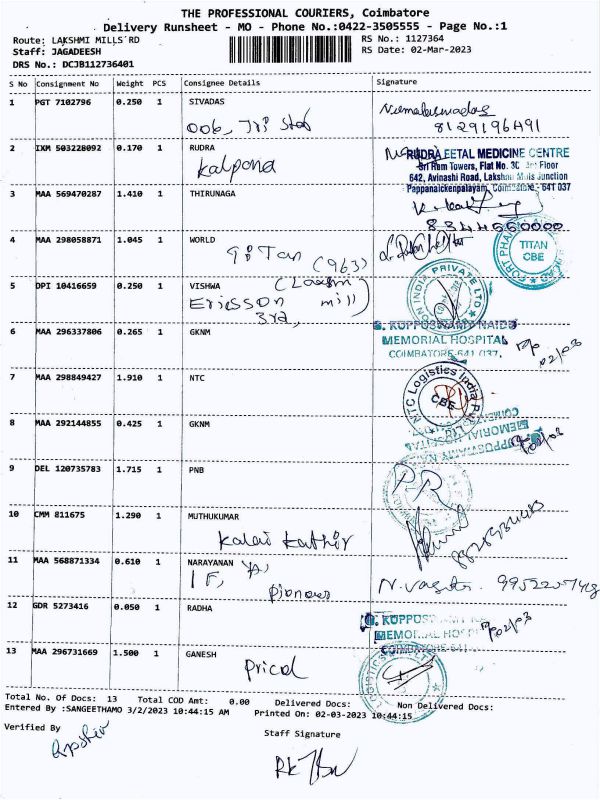 THE PROFESSIONAL COURIERS, Coimbatore
Delivery Runsheet - MO - Phone No.:0422-3505555 - Page No.:1
Route: LAKSHMI MILLS RD
RS No.: 1127364
Staff: JAGADEESH
RS Date: 02-Mar-2023
DRS No.: DCJB112736401
S No Consignment No Weight PCS Consignee Details Signature
1 PGT 7102796 0.250 1 SIVADAS
8129196491
2 IXM 503228092 0.170 1 RUDRA
Kalpana
RUDRA EETAL MEDICINE CENTRE
Sri Ram Towers, Flat No. 3C Floor
642, Avinashi Road, Lakshmi Mills Junction
Pappanaickenpalayam, Coimbatore - 641 037
3 MAA 569470287 1.410 1 THIRUNAGA
4 MAA 298058871 1.045 1 WORLD
Titan
(963)
TITAN
CBE
5 DPI 10416659 0.250 1 VISHWA
(Laxmi
Ericsson mill)
3rd,
INDIA PRIVATE LTD
6 MAA 296337806 0.265 1 GKNM
G. KUPPUSWAMY NAIDU
MEMORIAL HOSPITAL
COIMBATORE-641 037.
02/03
7 MAA 298849427 1.910 1 NTC
NTC Logistics India Pvt
CBE
8 MAA 292144855 0.425 1 GKNM
KUPPUSWAMY NAIDU
MEMORIAL HOSPITAL
9 DEL 120735783 1.715 1 PNB
10 CMM 811675 1.290 1 MUTHUKUMAR
Kalai Kathir
11 MAA 568871334 0.610 1 NARAYANAN
Pioneer
12 GDR 5273416 0.050 1 RADHA
G. KUPPUSWAMY
MEMORIAL HOSPI
COIMBATORE-641
02/03
13 MAA 296731669 1.500 1 GANESH
Pricol
Total No. Of Docs: 13 Total COD Amt: 0.00 Delivered Docs: Non Delivered Docs:
Entered By :SANGEETHAMO 3/2/2023 10:44:15 AM Printed On: 02-03-2023 10:44:15
Verified By
Staff Signature